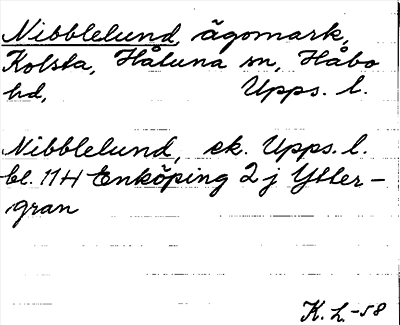 Nibblelund, ägomark,
Kolsta, Håtuna sn, Håbo
hd, Upps. l.
Nibblelund, ek. Upps. l.
bl. 11 H Enköping 2 j Ytter-
gran
K. L. -58